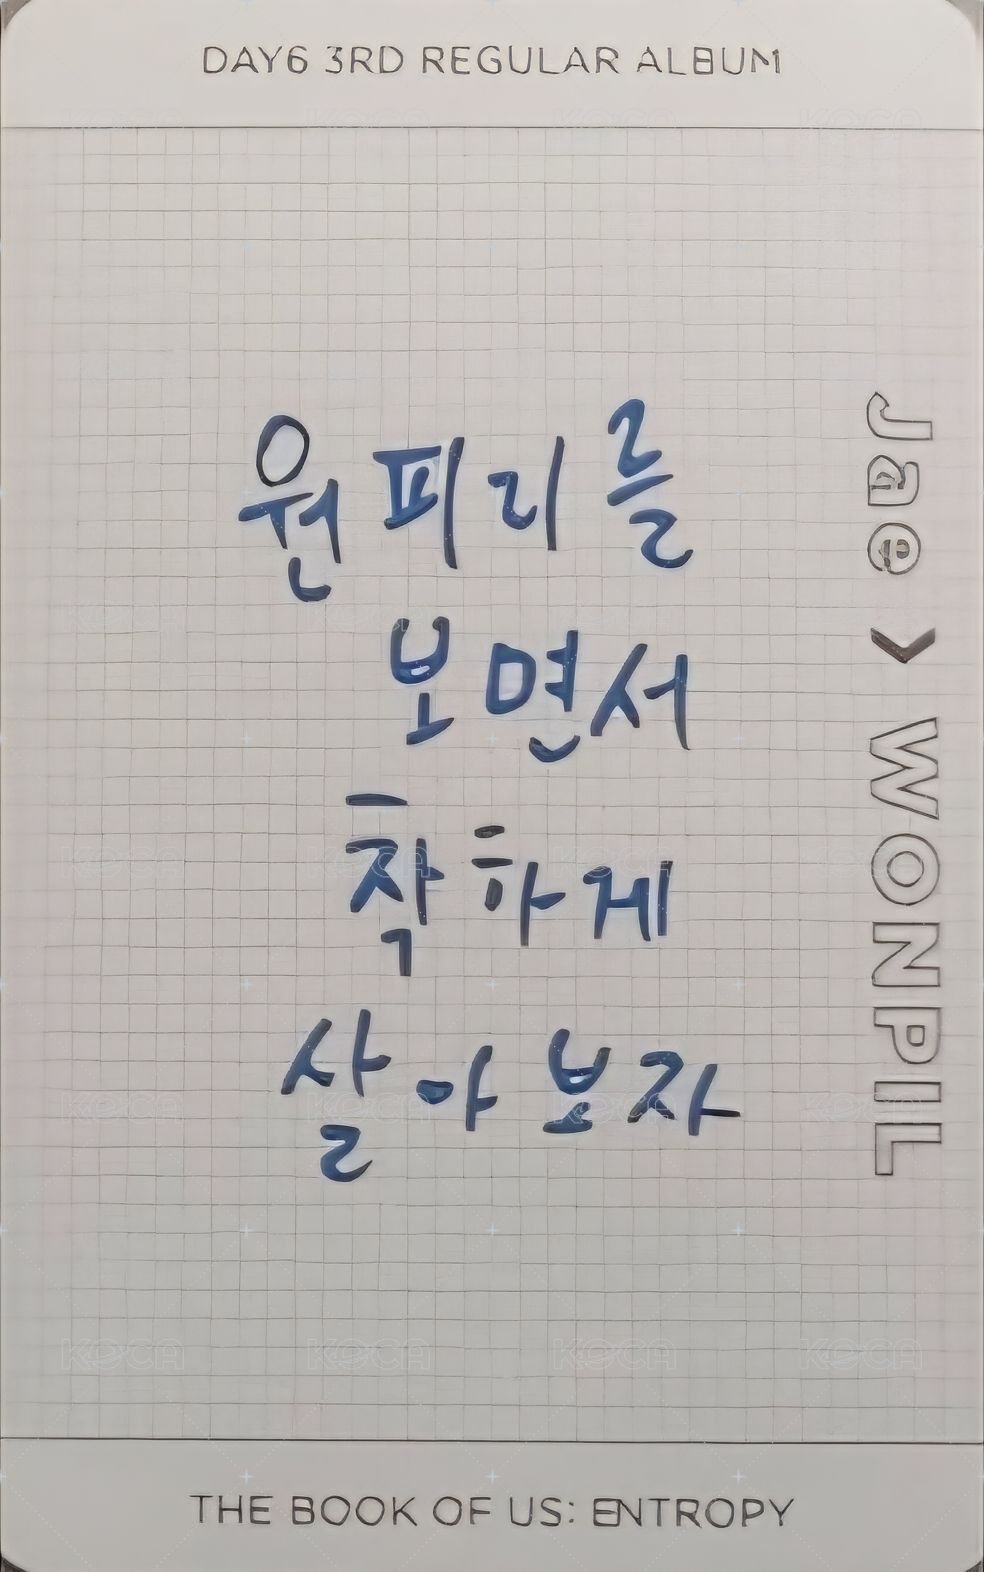 DAY6 3RD REGULAR ALBUM
원피리를
보면서
착하게
살아보자
Jae > WONPIL
THE BOOK OF US: ENTROPY
KOCA